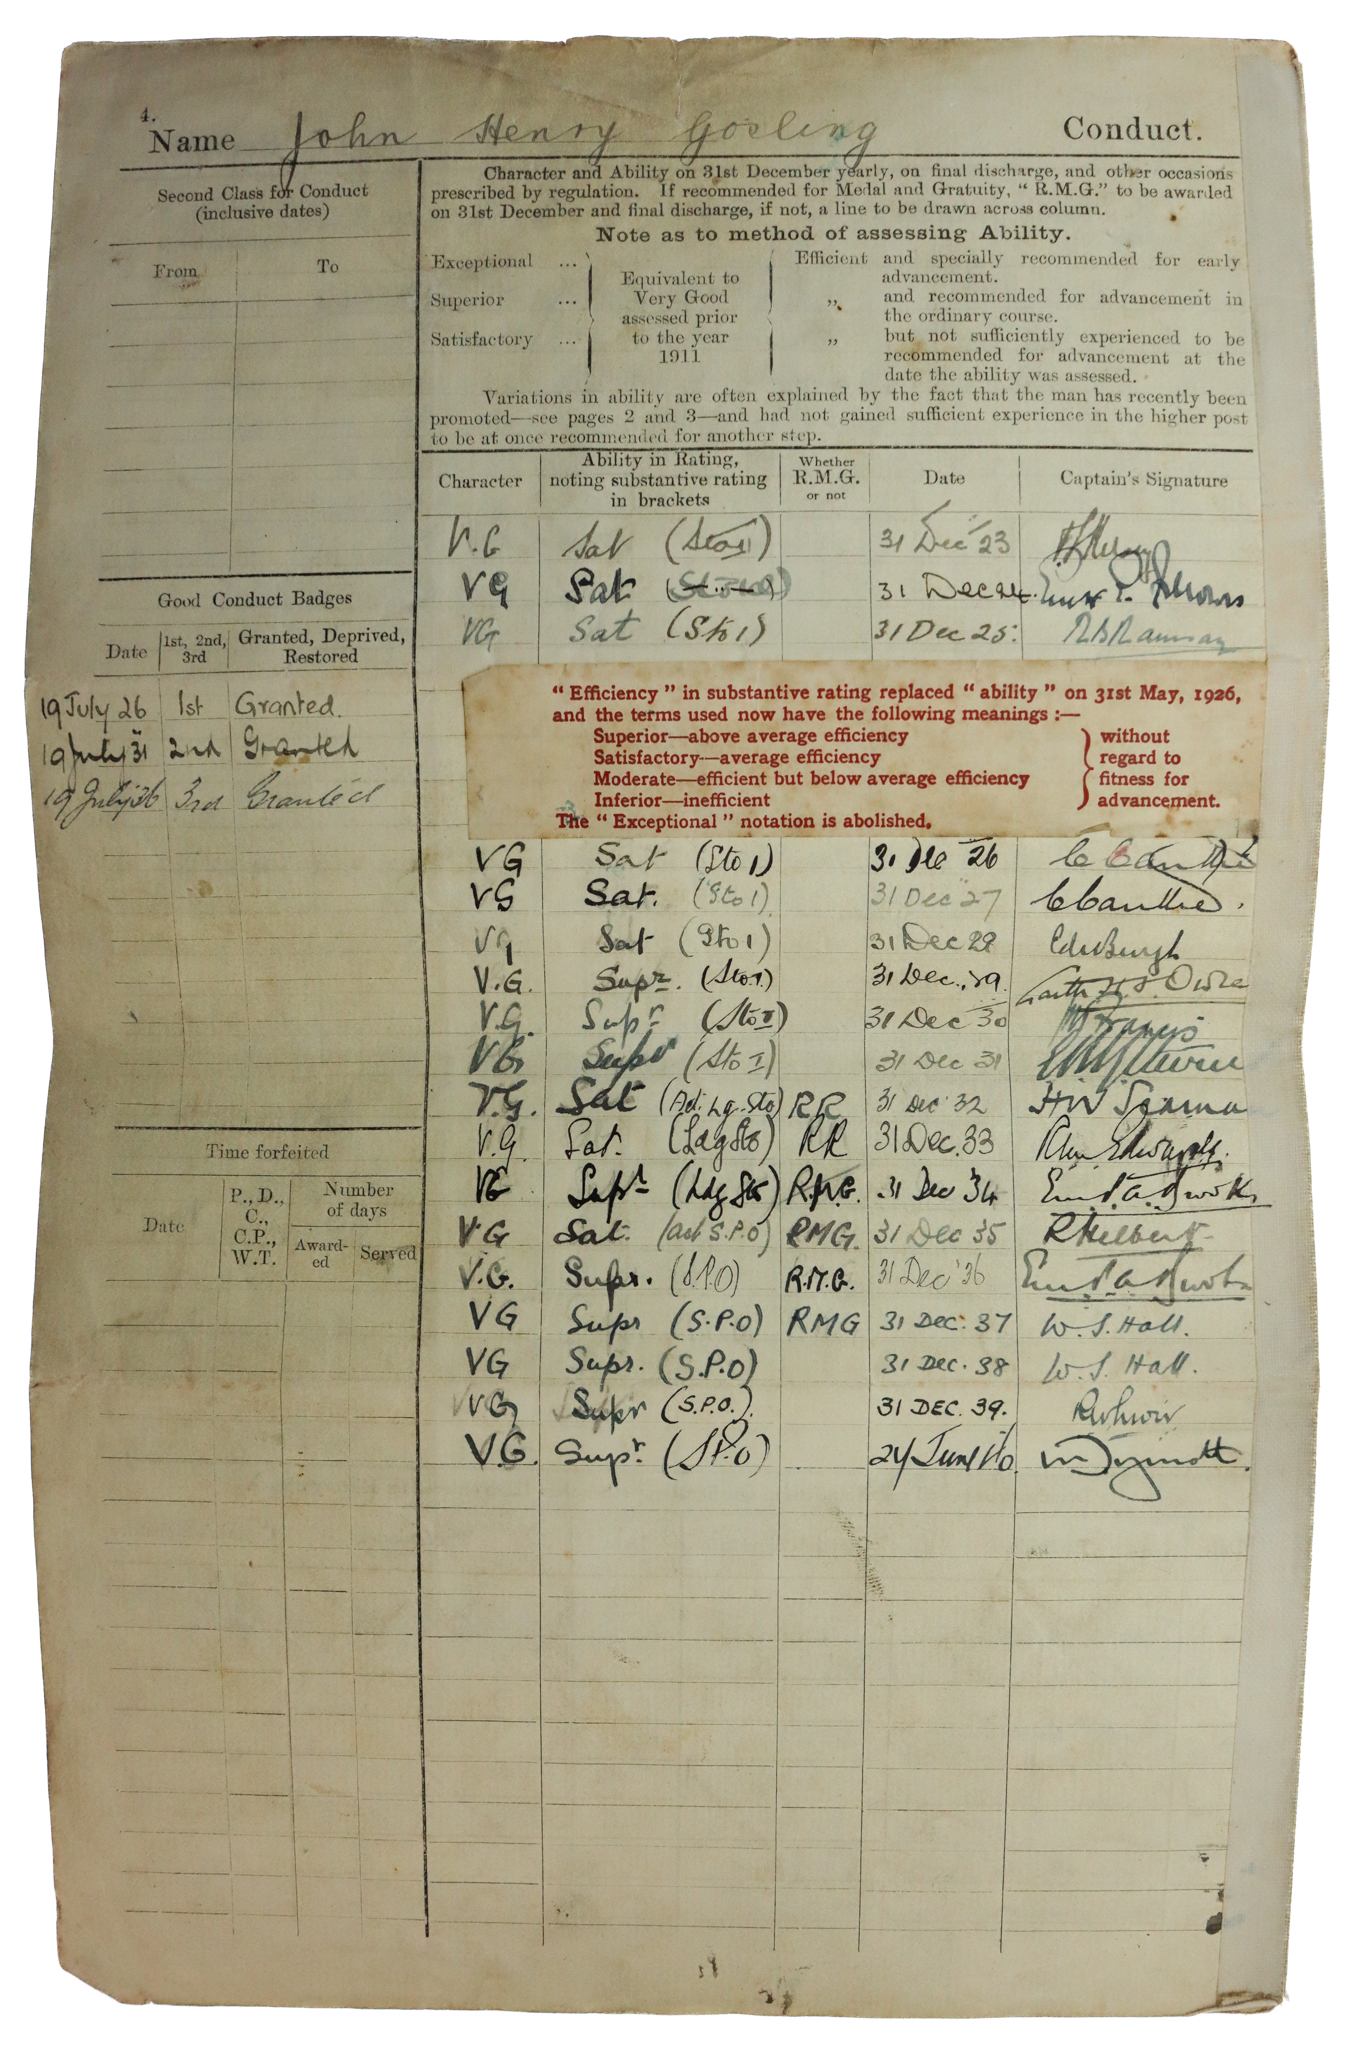 4.
Name John Henry Gosling Conduct.
Second Class for Conduct
(inclusive dates)
From To
Good Conduct Badges
Date 1st, 2nd, 3rd Granted, Deprived, Restored
19 July 26 1st Granted.
19 July 31 2nd Granted
19 July 36 3rd Granted
Time forfeited
Date P., D., C., C.P., W.T. Number of days
Award-ed Served
Character and Ability on 31st December yearly, on final discharge, and other occasions
prescribed by regulation. If recommended for Medal and Gratuity, "R.M.G." to be awarded
on 31st December and final discharge, if not, a line to be drawn across column.
Note as to method of assessing Ability.
Exceptional ... Efficient and specially recommended for early
advancement.
Superior ... Equivalent to Very Good assessed prior to the year 1911 „ and recommended for advancement in
the ordinary course.
Satisfactory ... „ but not sufficiently experienced to be
recommended for advancement at the
date the ability was assessed.
Variations in ability are often explained by the fact that the man has recently been
promoted—see pages 2 and 3—and had not gained sufficient experience in the higher post
to be at once recommended for another step.
Character Ability in Rating, noting substantive rating in brackets Whether R.M.G. or not Date Captain's Signature
V.G Sat (Sto II) 31 Dec 23
VG Sat 31 Dec 24.
VG Sat (Sto 1) 31 Dec 25. Ramsay
"Efficiency" in substantive rating replaced "ability" on 31st May, 1926,
and the terms used now have the following meanings :—
Superior—above average efficiency
Satisfactory—average efficiency
Moderate—efficient but below average efficiency
Inferior—inefficient
without
regard to
fitness for
advancement.
The "Exceptional" notation is abolished.
VG Sat (Sto 1) 31 Dec 26
VG Sat. (Sto 1) 31 Dec 27
VG Sat (Sto 1) 31 Dec 28
V.G. Supr. (Sto.1.) 31 Dec. 29.
V.G. Supr (Sto I) 31 Dec 30 Francis
VG Supr (Sto I) 31 Dec 31
V.G. Sat (Act. Lg. Sto) RR 31 Dec 32
V.G. Sat. (Ldg Sto) RR 31 Dec. 33
VG Supr (Ldg Sto) R.M.G. 31 Dec 34
VG Sat. (act S.P.O) RMG. 31 Dec 35
V.G. Supr. (S.P.O) R.M.G. 31 Dec '36
VG Supr (S.P.O) RMG 31 Dec. 37 W. S. Hall.
VG Supr. (S.P.O) 31 Dec. 38 W. S. Hall.
VG Supr (S.P.O.) 31 DEC. 39.
V.G. Supr. (S.P.O) 24 June 40